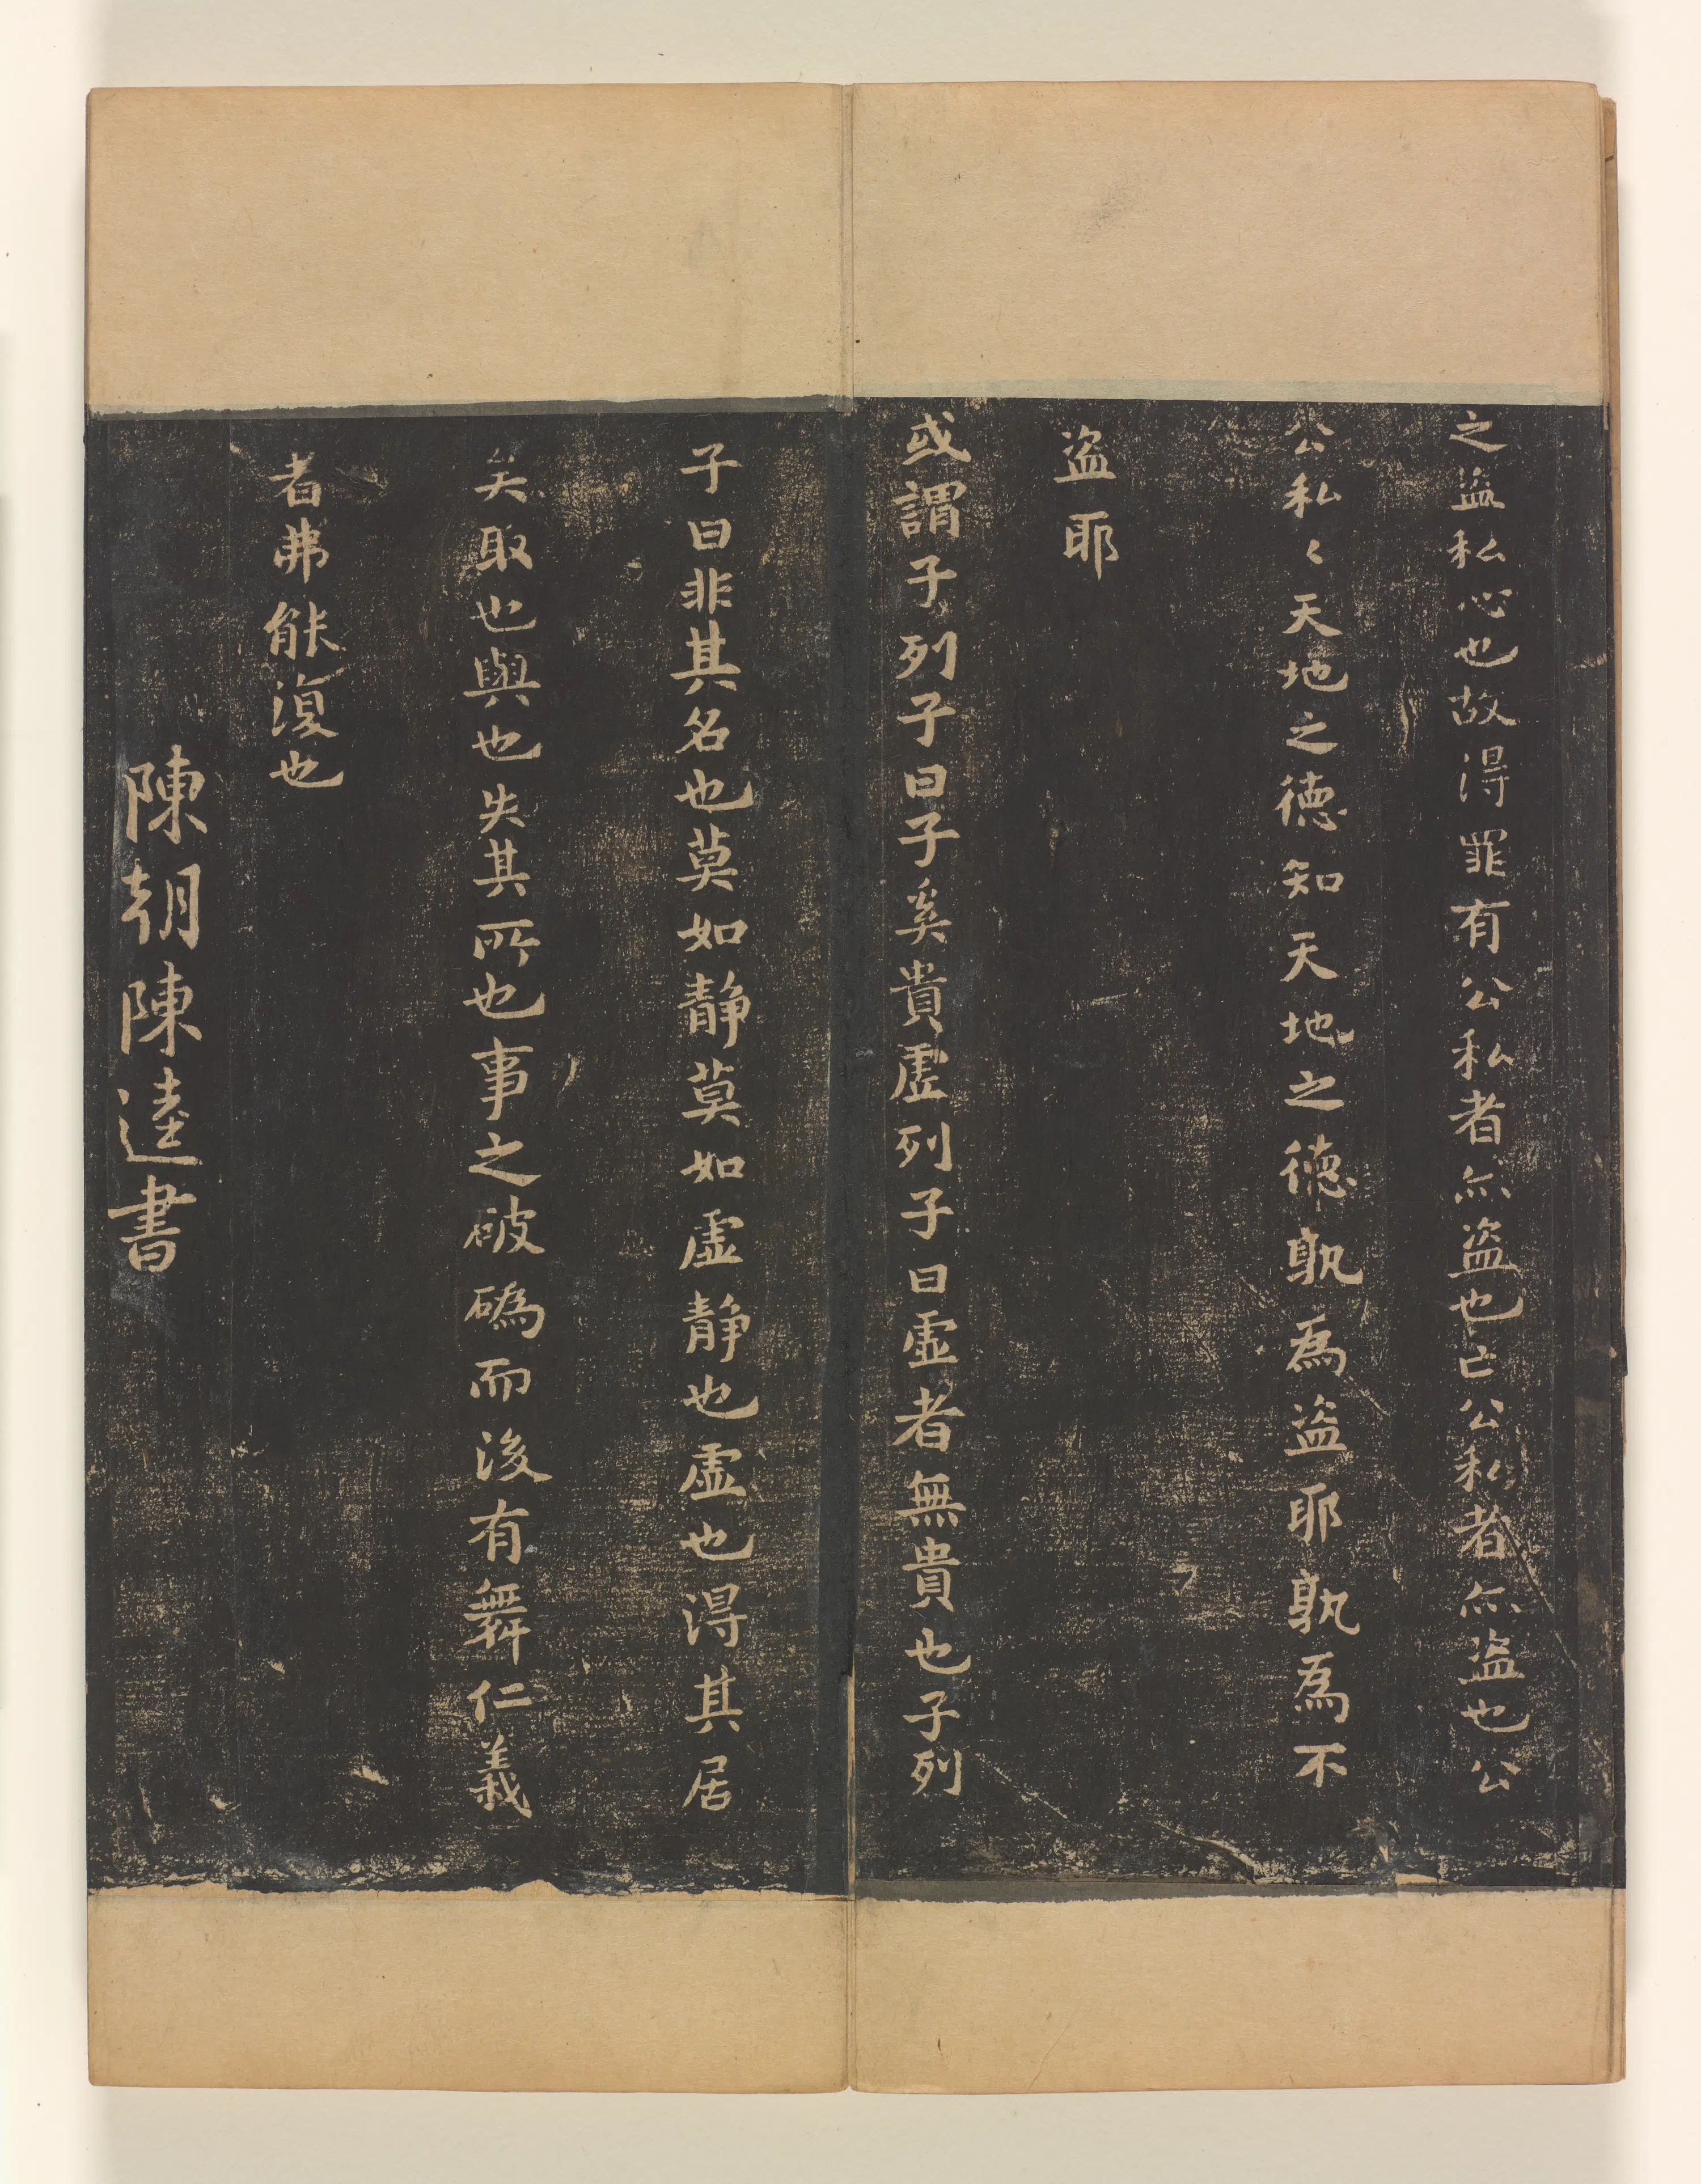 之盗私心也故得罪有公私者亦盗也亡公私者亦盗也公
公私〻天地之德知天地之德孰為盗耶孰為不
盗耶
或謂子列子曰子奚貴虛列子曰虛者無貴也子列
子曰非其名也莫如静莫如虛静也虛也得其居
矣取也與也失其所也事之破碼而後有舞仁義
者弗能復也
陳朝陳逵書